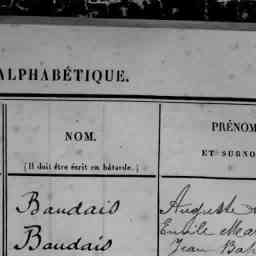 ALPHABÉTIQUE.
NOM.
(Il doit être écrit en bâtarde.)
PRÉNOM
ET SURNO
Baudais
Auguste
Baudais
Emile Mar
Jean Bap